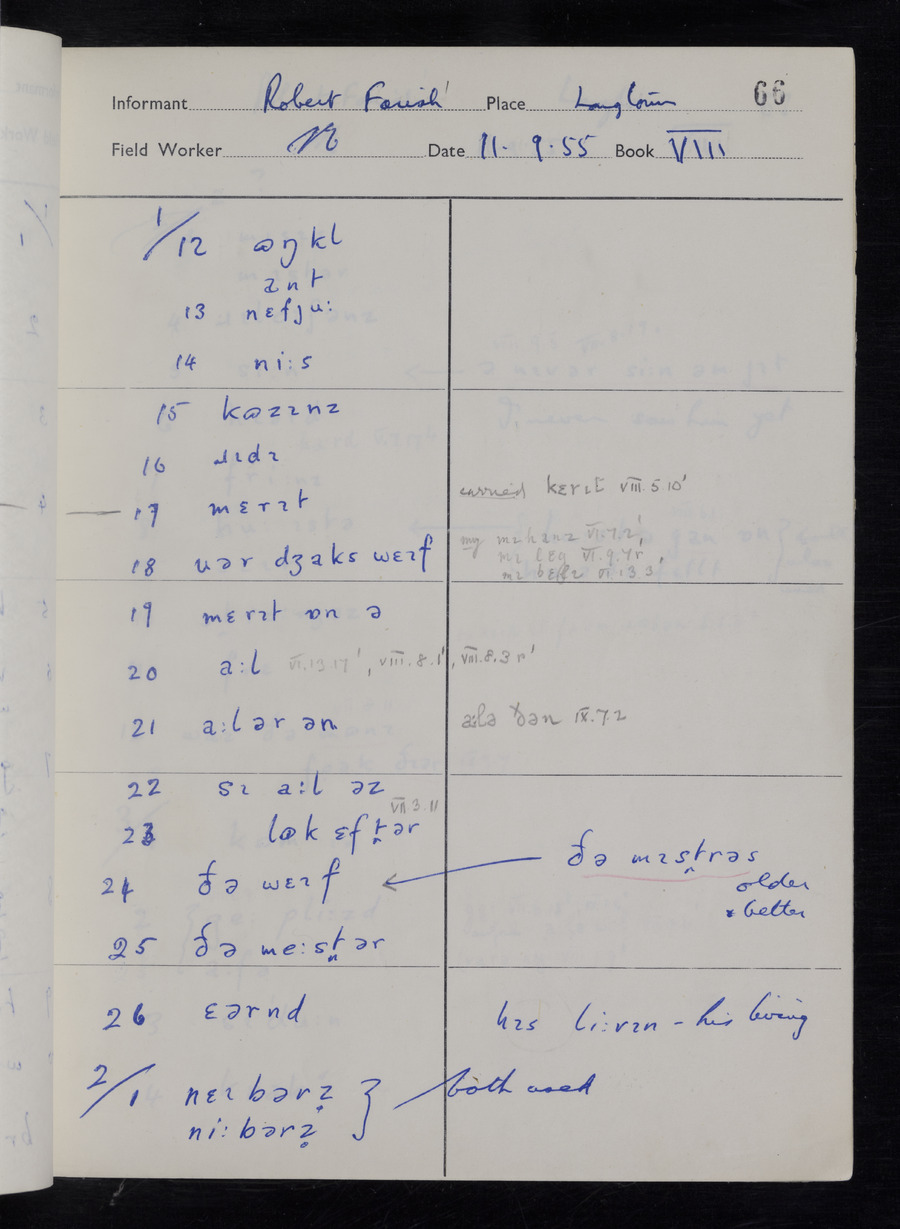 Informant Robert Place Longtown 66
Field Worker Date 11. 9. 55 Book VIII
1/12 ɷŋkl
ant
13 nɛfju:
14 ni:s
15 kɷzɪnz
16 ɹɪdɪ
17 mɛrɪt carried kɛrɪt VIII.5.10'
18 uər dʒaks wɛɪf my mɪ hanz VI.7.2',
mɪ lɛg VI.9.4r,
VI.13.3
19 mɛrɪt ɒn ə
20 a:l VI.13.17', VIII.8.1', VIII.8.3r'
21 a:lər ən a:lə ðən IX.7.2
22 sɪ a:l əz
VII.3.11
23 lɷk ɛft̪ər
24 ðə wɛɪf ← ðə mɪst̪rəs
older
& better
25 ðə me:st̪ər
26 ɛərnd hɪs li:vɪn - his living
2/1 nɛɪbərz̥ } both used
ni:bərz̥